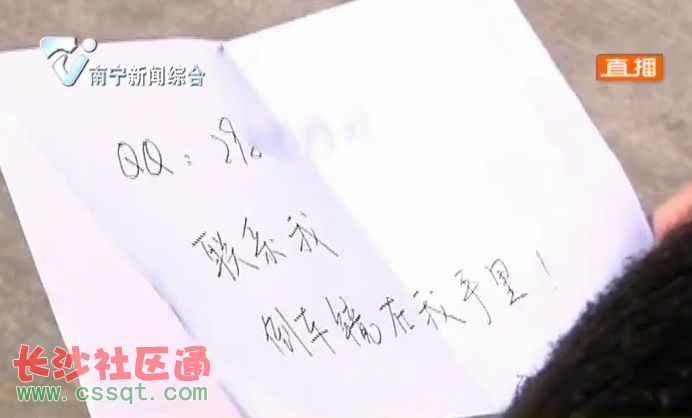 南宁新闻综合
直播
QQ:29
联系我
倒车镜在我手里!
长沙社区通
www.cssqt.com